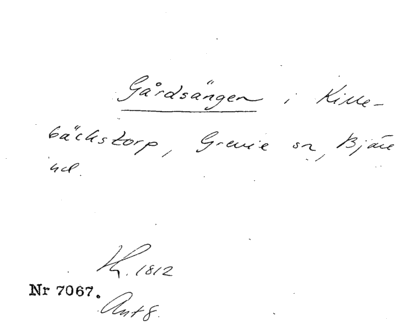 Gårdsängen i Kille-
bäckstorp, Grevie sn, Bjäre
hd.
Kh. 1812
Nr 7067.
Ant 8.